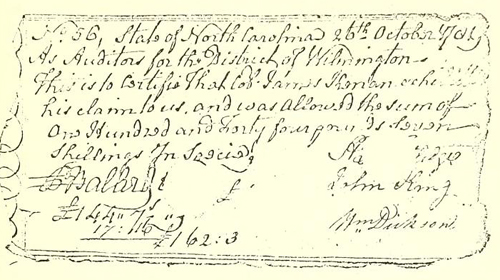 No. 56, State of North Carolina 26th October 1781
As Auditors for the District of Wilmington
This is to Certify That Col. James Kenan
his claim to us, and was allowed the sum of
One Hundred and Forty four pounds Seven
Shillings In Specie
£ John King
£144" 7s
Wm Dickson
17:16 "
£162:3